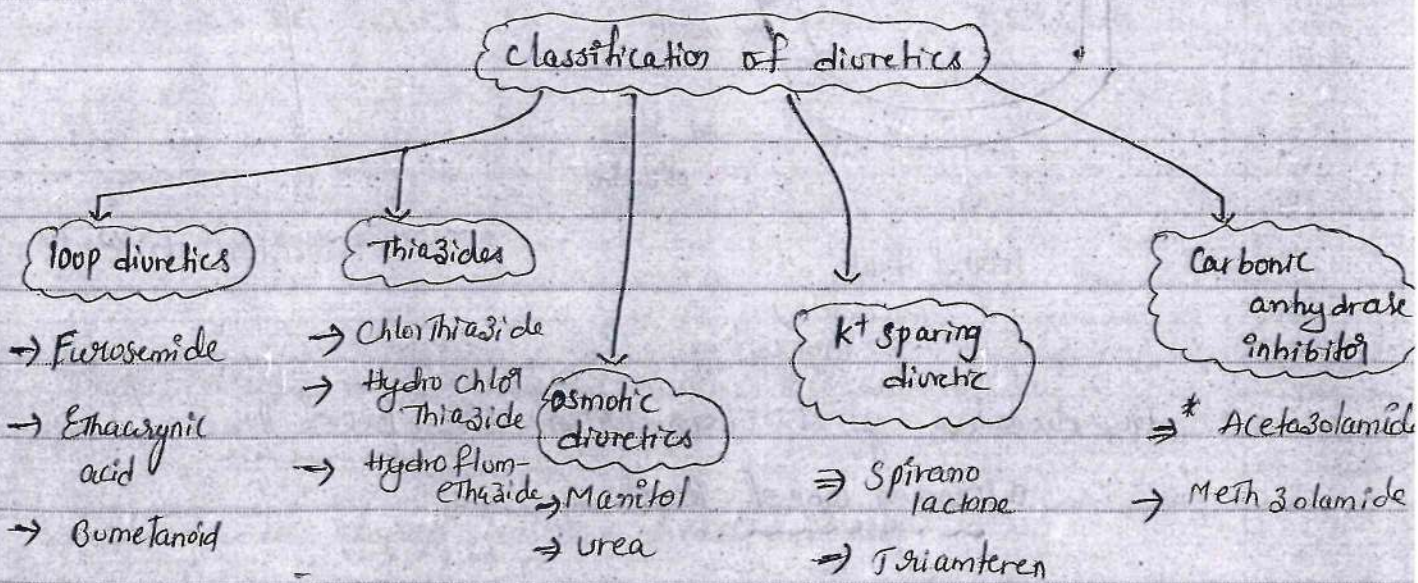 Classification of diuretics
loop diuretics
→ Furosemide
→ Ethacrynic
acid
→ Bumetanoid
Thiazides
→ Chlor Thiazide
→ Hydro chlor
Thiazide
→ Hydro flum-
ethazide
osmotic
diuretics
→ Manitol
⇒ urea
K+ sparing
diuretic
⇒ Spirano
lactone
⇒ Triamteren
Carbonic
anhydrase
inhibitor
⇒ * Acetazolamid
→ Meth zolamide